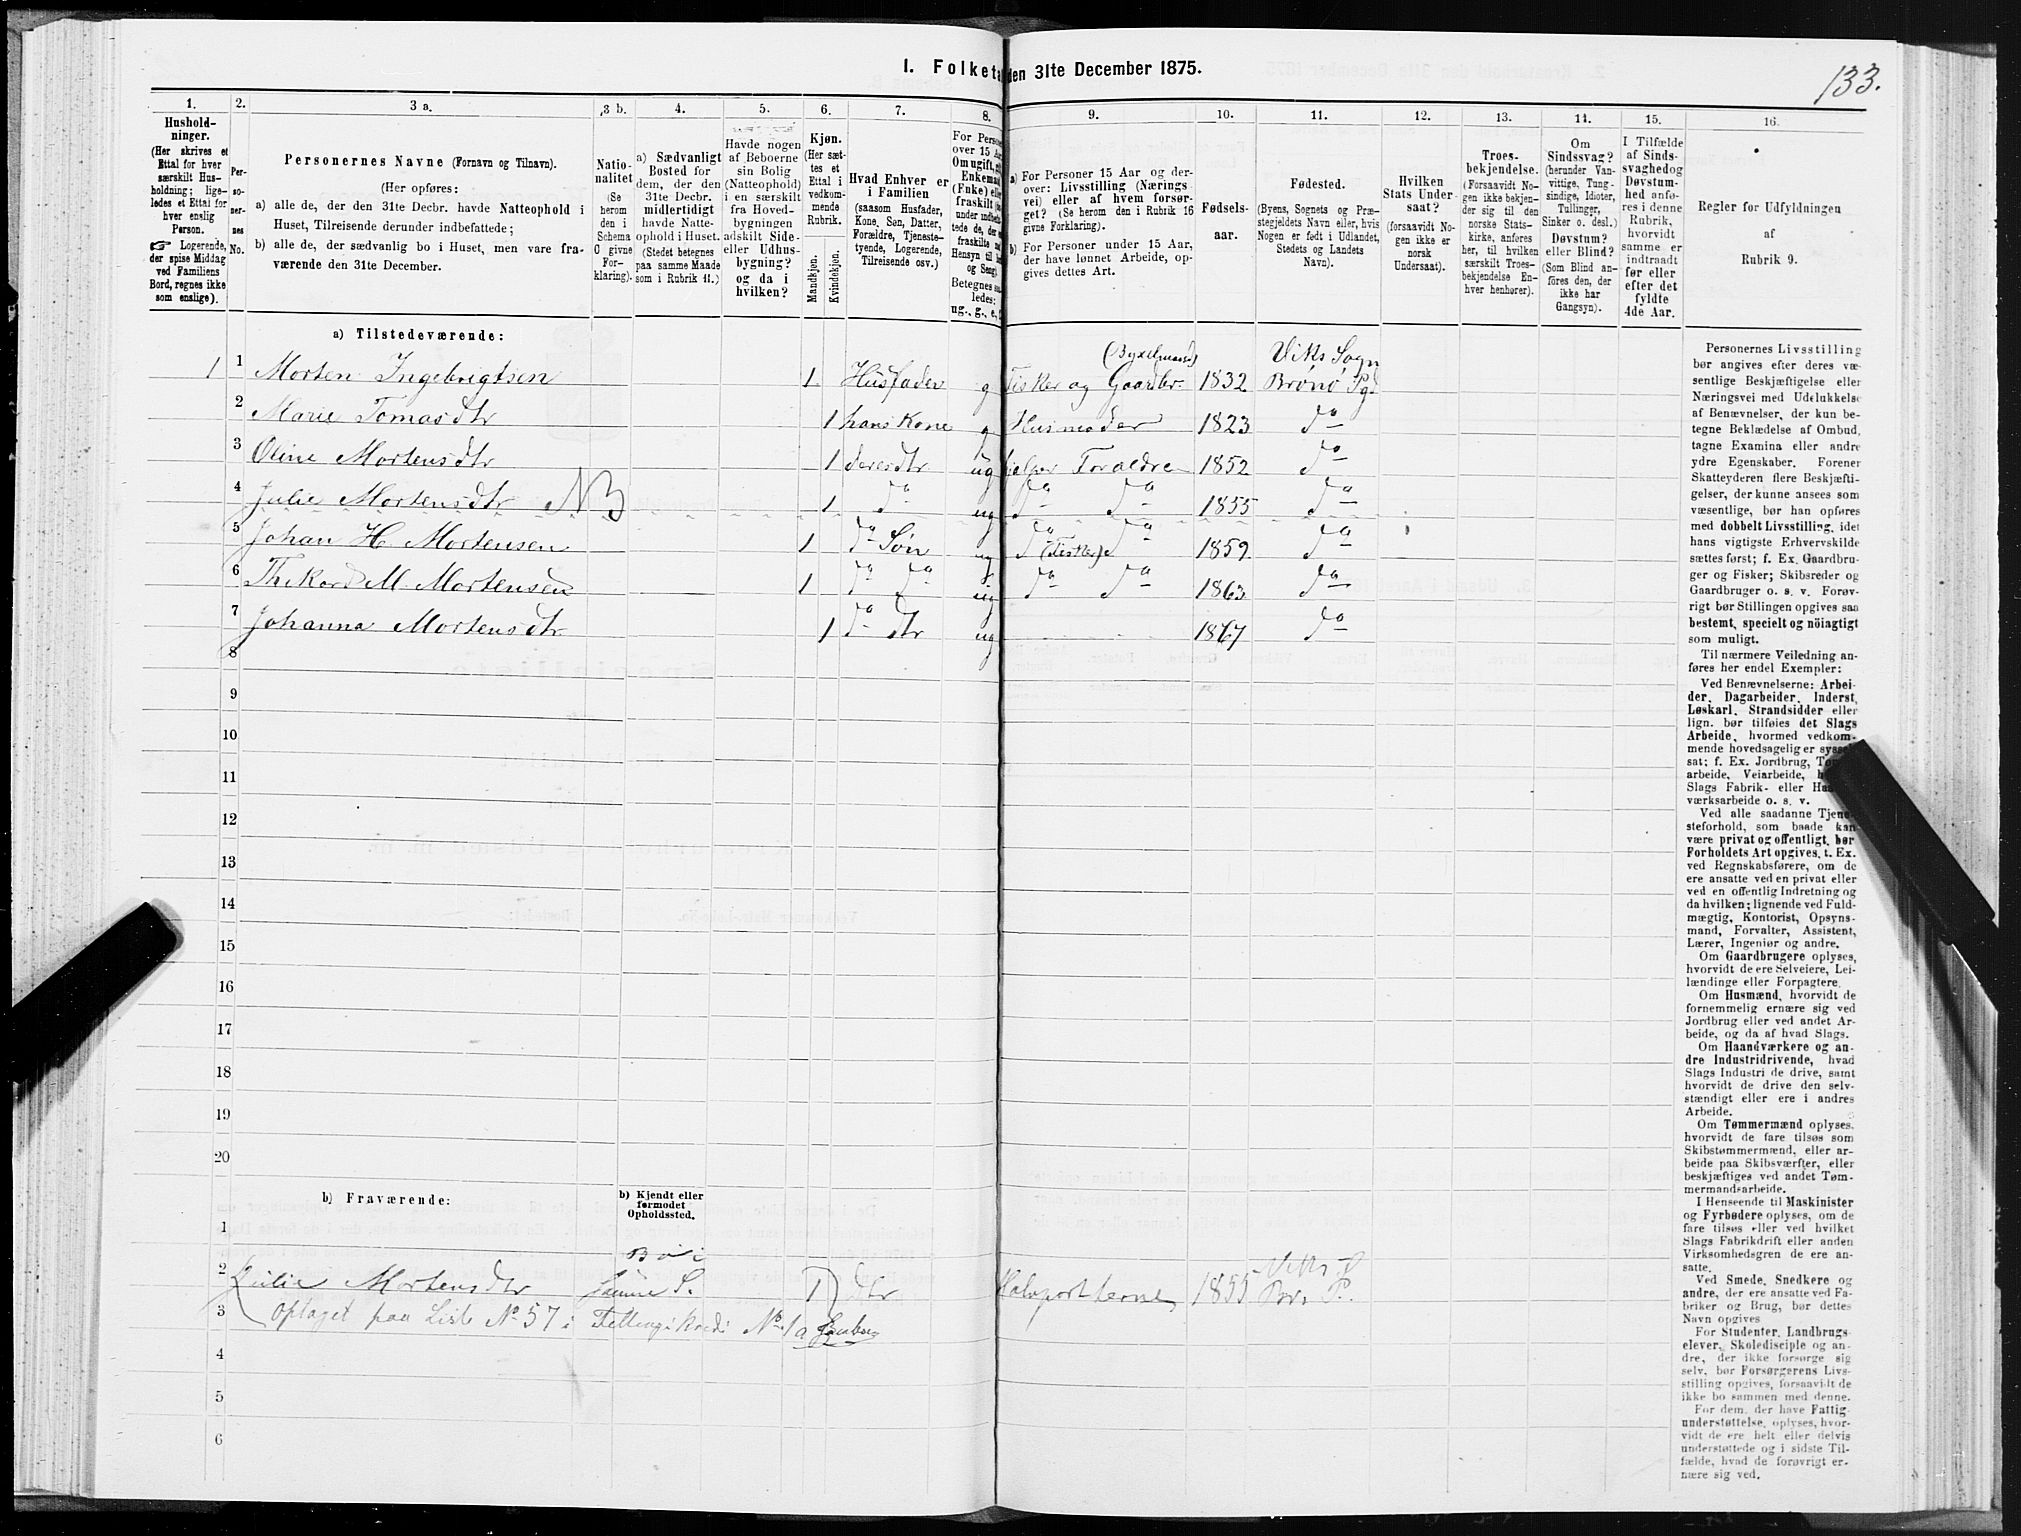 133.
I. Folketa
den 31te December 1875.
1. 2. 3 a. 3 b. 4. 5. 6. 7. 8. 9. 10. 11. 12. 13. 14. 15. 16.
Hushold-
ninger.
(Her skrives et
Ettal for hver
særskilt Hus-
holdning; lige-
ledes et Ettal for
hver enslig
Person.
☞ Logerende,
der spise Middag
ved Familiens
Bord, regnes ikke
som enslige).
Per-
so-
ner-
nes
No.
Personernes Navne (Fornavn og Tilnavn).
(Her opføres:
a) alle de, der den 31te Decbr. havde Natteophold i
Huset, Tilreisende derunder indbefattede;
b) alle de, der sædvanlig bo i Huset, men vare fra-
værende den 31te December.
Natio-
nalitet
(Se
herom
den i
Schema
O givne
For-
klaring).
a) Sædvanligt
Bosted for
dem, der den
31te Decbr.
midlertidigt
havde Natte-
ophold i Huset.
(Stedet betegnes
paa samme Maade
som i Rubrik 11.)
Havde nogen
af Beboerne
sin Bolig
(Natteophold)
i en særskilt
fra Hoved-
bygningen
adskilt Side-
eller Udhus-
bygning?
og da i
hvilken?
Kjøn.
(Her sæt-
tes et
Ettal i
vedkom-
mende
Rubrik.
Mandkjøn.
Kvindekjøn.
Hvad Enhver er
i Familien
(saasom Husfader,
Kone, Søn, Datter,
Forældre, Tjeneste-
tyende, Logerende,
Tilreisende osv.)
For Person
over 15 Aar
Om ugift, gi
Enkemand
(Enke) eller
fraskilt
Betegnes saa-
ledes:
ug., g., e,
a) For Personer 15 Aar og der-
over: Livsstilling (Nærings-
vei) eller af hvem forsør-
get? (Se herom den i Rubrik 16
givne Forklaring).
b) For Personer under 15 Aar,
der have lønnet Arbeide, op-
gives dettes Art.
Fødsels-
aar.
Fødested.
(Byens, Sognets og Præ-
stegjeldets Navn eller, hvis
Nogen er født i Udlandet,
Stedets og Landets
Navn).
Hvilken
Stats Under-
saat?
(forsaavidt No-
gen ikke er
norsk
Undersaat).
Troes-
bekjendelse.
(Forsaavidt No-
gen ikke bekjen-
der sig til den
norske Stats-
kirke, anføres
her, til hvilken
særskilt Troes-
bekjendelse En-
hver henhører).
Om
Sindssvag?
(herunder Van-
vittige, Tung-
sindige, Idioter,
Tullinger,
Sinker o. desl.)
Døvstum?
eller Blind?
(Som Blind an-
føres den, der
ikke har
Gangsyn).
I Tilfælde
af Sinds-
svaghed og
Døvstum-
hed anfø-
res i denne
Rubrik,
hvorvidt
samme er
indtraadt
før eller
efter det
fyldte
4de Aar.
Regler for Udfyldningen
af
Rubrik 9.
a) Tilstedeværende:
(Byxelmand) Viks Sogn
1 1 Morten Ingebrigtsen 1 Husfader g Fisker og Gaardbr. 1832 Brønø Pgd
2 Marie Tomasdtr 1 hans Kone g Husmoder 1823 do
3 Oline Mortensdtr 1 deres dtr ug hjelper Foraldre 1852 do
4 Julie Mortensdtr NB 1 do ug do do 1855 do
5 Johan H. Mortensen 1 do Søn ug do (Fisker) do 1859 do
6 M. Mortensen 1 do do ug do do 1863 do
7 Johanna Mortensdtr 1 do dtr ug 1867 do
8
9
10
11
12
13
14
15
16
17
18
19
20
b) Fraværende:
b) Kjendt eller
formodet
Opholdssted.
1
2 Julie Mortensdtr 1 dtr 1855
3 Optaget paa Liste No 57 i No 1a
4
5
6
Personernes Livsstilling
bør angives efter deres væ-
sentlige Beskjæftigelse eller
Næringsvei med Udelukkelse
af Benævnelser, der kun be-
tegne Beklædelse af Ombud,
tagne Examina eller andre
ydre Egenskaber. Forener
Skatteyderen flere Beskjæfti-
gelser, der kunne ansees som
væsentlige, bør han opføres
med dobbelt Livsstilling, idet
hans vigtigste Erhvervskilde
sættes først; f. Ex. Gaardbru-
ger og Fisker; Skibsreder og
Gaardbruger o. s. v. Forøv-
rigt bør Stillingen opgives saa
bestemt, specielt og nöiagtigt
som muligt.
Til nærmere Veiledning an-
føres her endel Exempler:
Ved Benævnelserne: Arbei-
der, Dagarbeider, Inderst,
Løskarl, Strandsidder eller
lign. bør tilføies det Slags
Arbeide, hvormed vedkom-
mende hovedsagelig er syssel-
sat; f. Ex. Jordbrug,
arbeide, Veiarbeide,
Slags Fabrik- eller
værksarbeide o. s. v.
Ved alle saadanne Tjene-
steforhold, som baade kan
være privat og offentligt, bør
Forholdets Art opgives, t. Ex.
ved Regnskabsførere, om de
ere ansatte ved en privat eller
ved en offentlig Indretning og
da hvilken; lignende ved Fuld-
mægtig, Kontorist, Opsyns-
mand, Forvalter, Assistent,
Lærer, Ingeniør og andre.
Om Gaardbrugere oplyses,
hvorvidt de ere Selveiere, Lei-
lændinge eller Forpagtere.
Om Husmænd, hvorvidt de
fornemmelig ernære sig ved
Jordbrug eller ved andet Ar-
beide, og da af hvad Slags.
Om Haandværkere og an-
dre Industridrivende, hvad
Slags Industri de drive, samt
hvorvidt de drive den selv-
stændigt eller ere i andres
Arbeide.
Om Tømmermænd oplyses,
hvorvidt de fare tilsøs som
Skibstømmermænd, eller ar-
beide paa Skibsværfter, eller
beskjæftiges ved andet Tøm-
mermandsarbeide.
I Henseende til Maskinister
og Fyrbødere oplyses, om de
fare tilsøs eller ved hvilket
Slags Fabrikdrift eller anden
Virksomhedsgren de ere an-
satte.
Ved Smede, Snedkere og
andre, der ere ansatte ved Fa-
briker og Brug, bør dettes
Navn opgives
For Studenter, Landbrugs-
elever, Skoledisciple og an-
dre, der ikke forsørge sig
selv, bør Forsørgerens Livs-
stilling opgives, forsaavidt de
ikke bo sammen med denne.
For dem, der have Fattig-
understøttelse, oplyses, hvor-
vidt de ere helt eller delvis
understøttede og i sidste Til-
fælde, hvad de forøvrigt er-
nære sig ved.